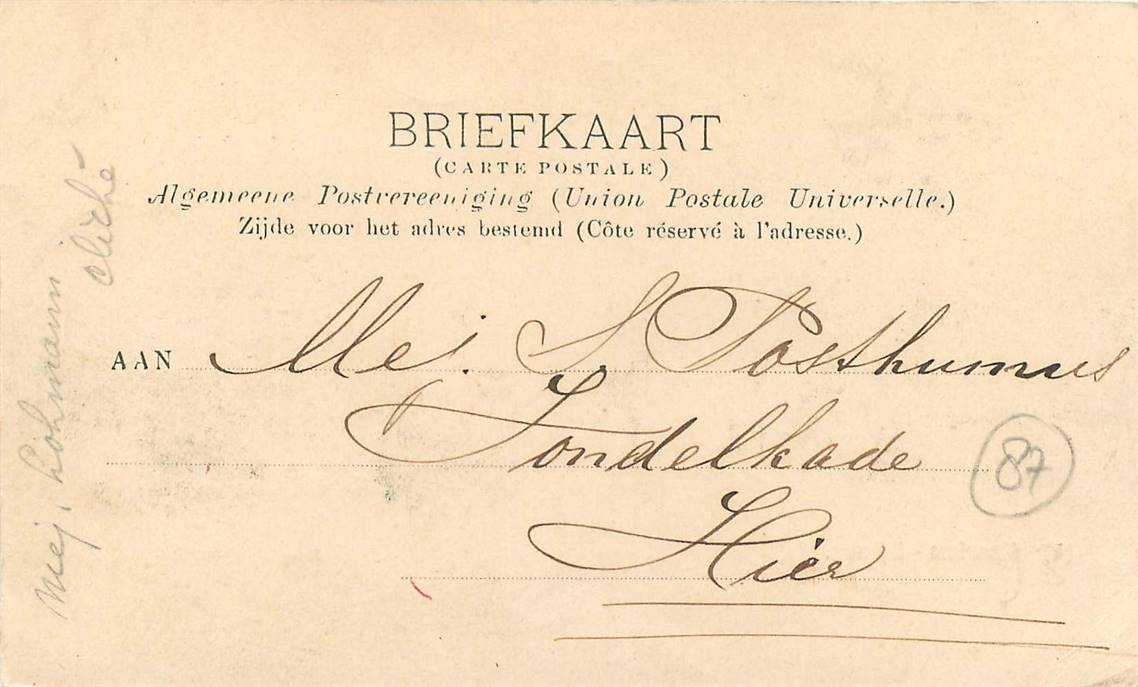 BRIEFKAART
(CARTE POSTALE)
Algemeene Postvereeniging (Union Postale Universelle.)
Zijde voor het adres bestemd (Côte réservé à l'adresse.)
AAN Mej. S Posthumus
Vondelkade
Hier
87
Mej. Lohmann
cliché